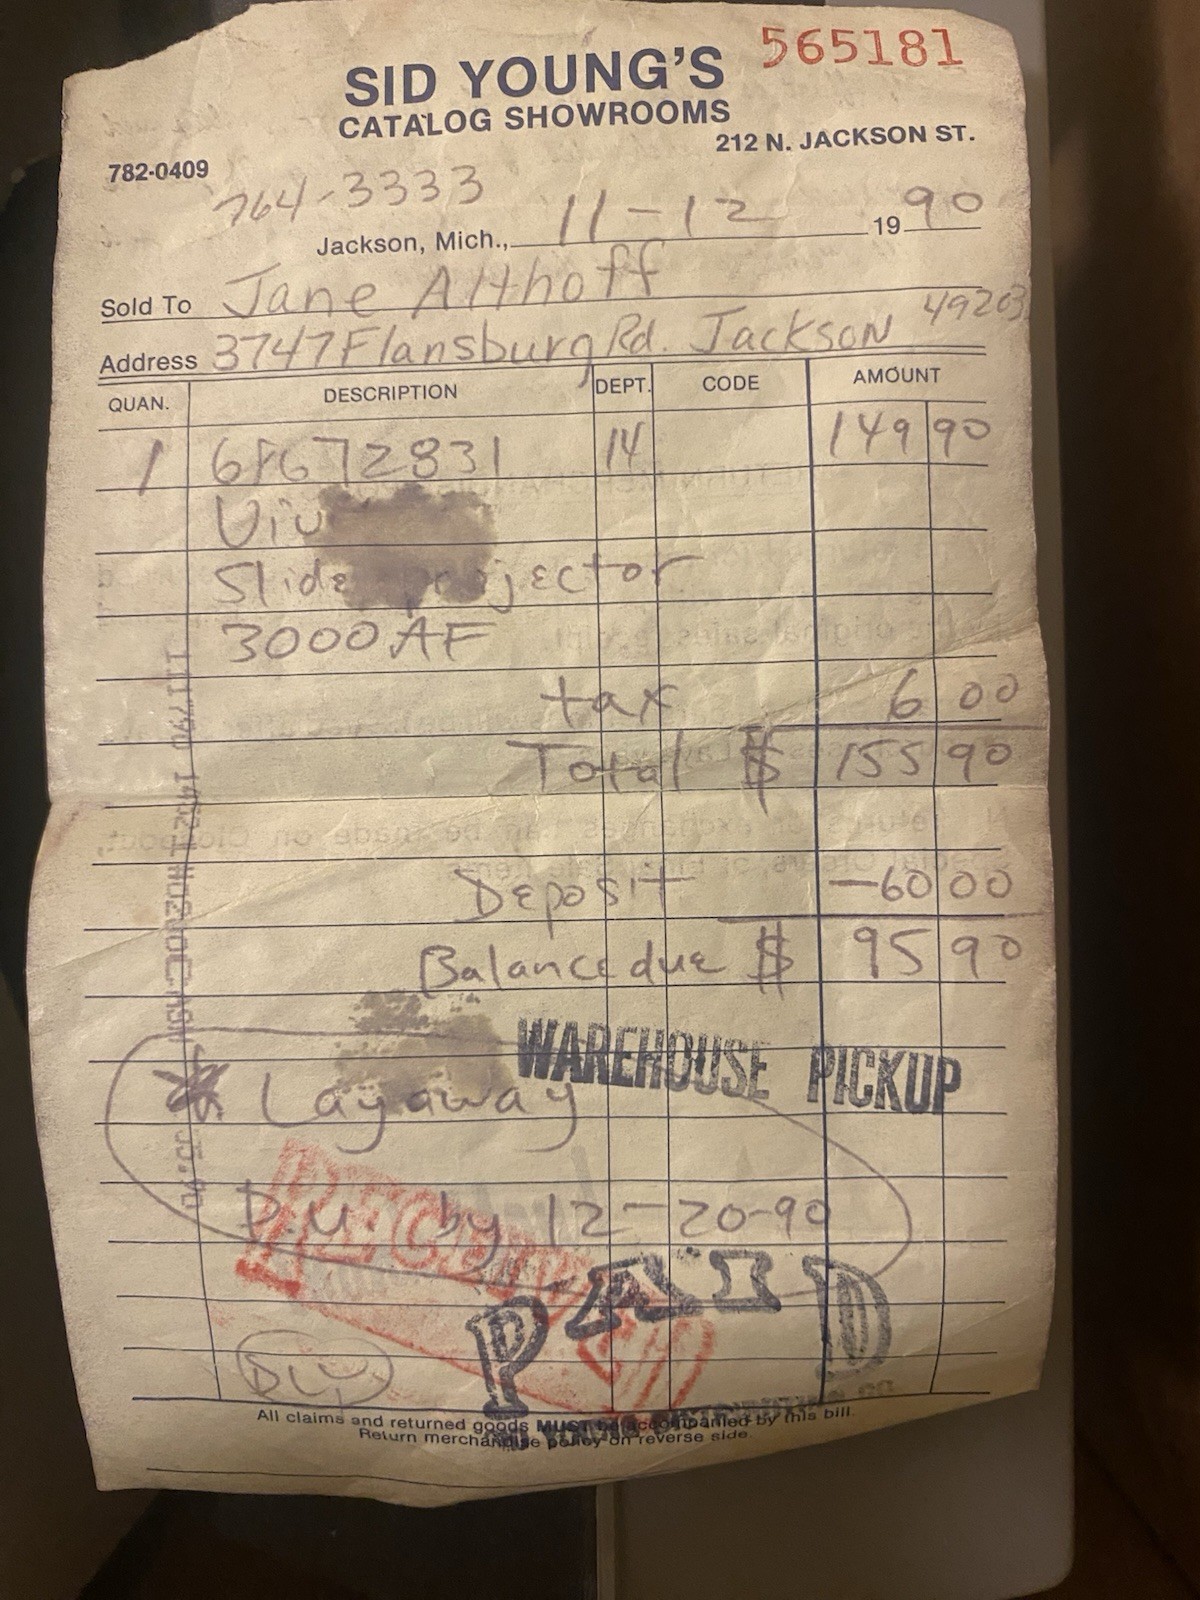 565181
SID YOUNG'S
CATALOG SHOWROOMS
212 N. JACKSON ST.
782-0409
764-3333
Jackson, Mich., 11-12 1990
Sold To Jane Althoff
Address 3747 Flansburg Rd. Jackson 49203
QUAN. DESCRIPTION DEPT. CODE AMOUNT
1 14 149 90
Slide projector
3000 AF
tax 6 00
Total $ 155 90
Deposit -60 00
Balance due $ 95 90
WAREHOUSE PICKUP
* Layaway
P.U. by 12-20-90
RECEIVED
PAID
All claims and returned goods MUST be accompanied by this bill.
Return merchandise policy on reverse side.